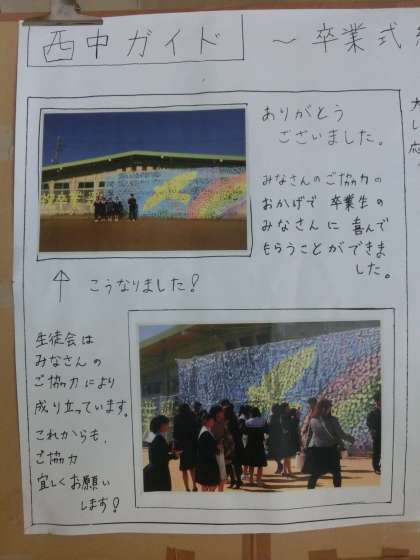 西中ガイド
～卒業式
ありがとう
ございました。
みなさんのご協力の
おかげで卒業生の
みなさんに喜んで
もらうことができま
した。
↑ こうなりました!
生徒会は
みなさんの
ご協力により
成り立っています。
これからも、
ご協力
宜しくお願い
します!